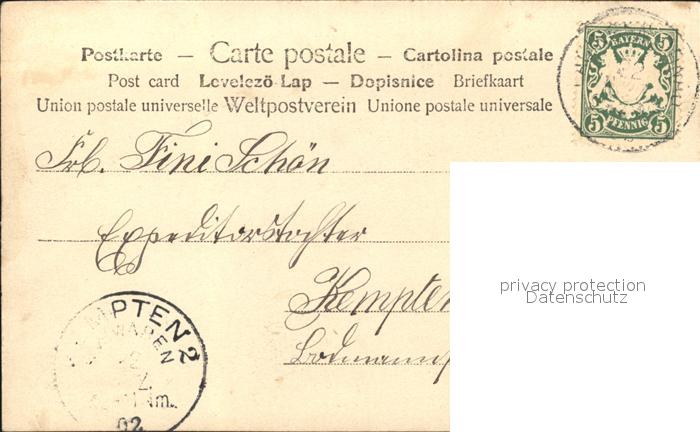 Postkarte — Carte postale — Cartolina postale
Post card Levelező-Lap — Dopisnice Briefkaart
Union postale universelle Weltpostverein Unione postale universale
5 BAYERN 5
5 PFENNIG 5
Frl. Fini Schön
Expeditorstochter
Kempten
privacy protection
Datenschutz
KEMPTEN 2
02